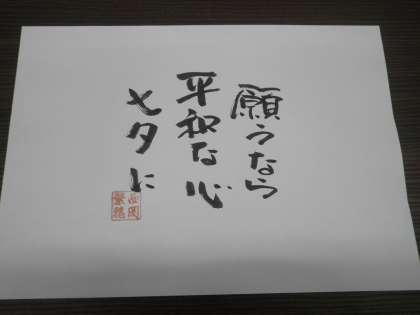 願うなら
平和な心
七夕に